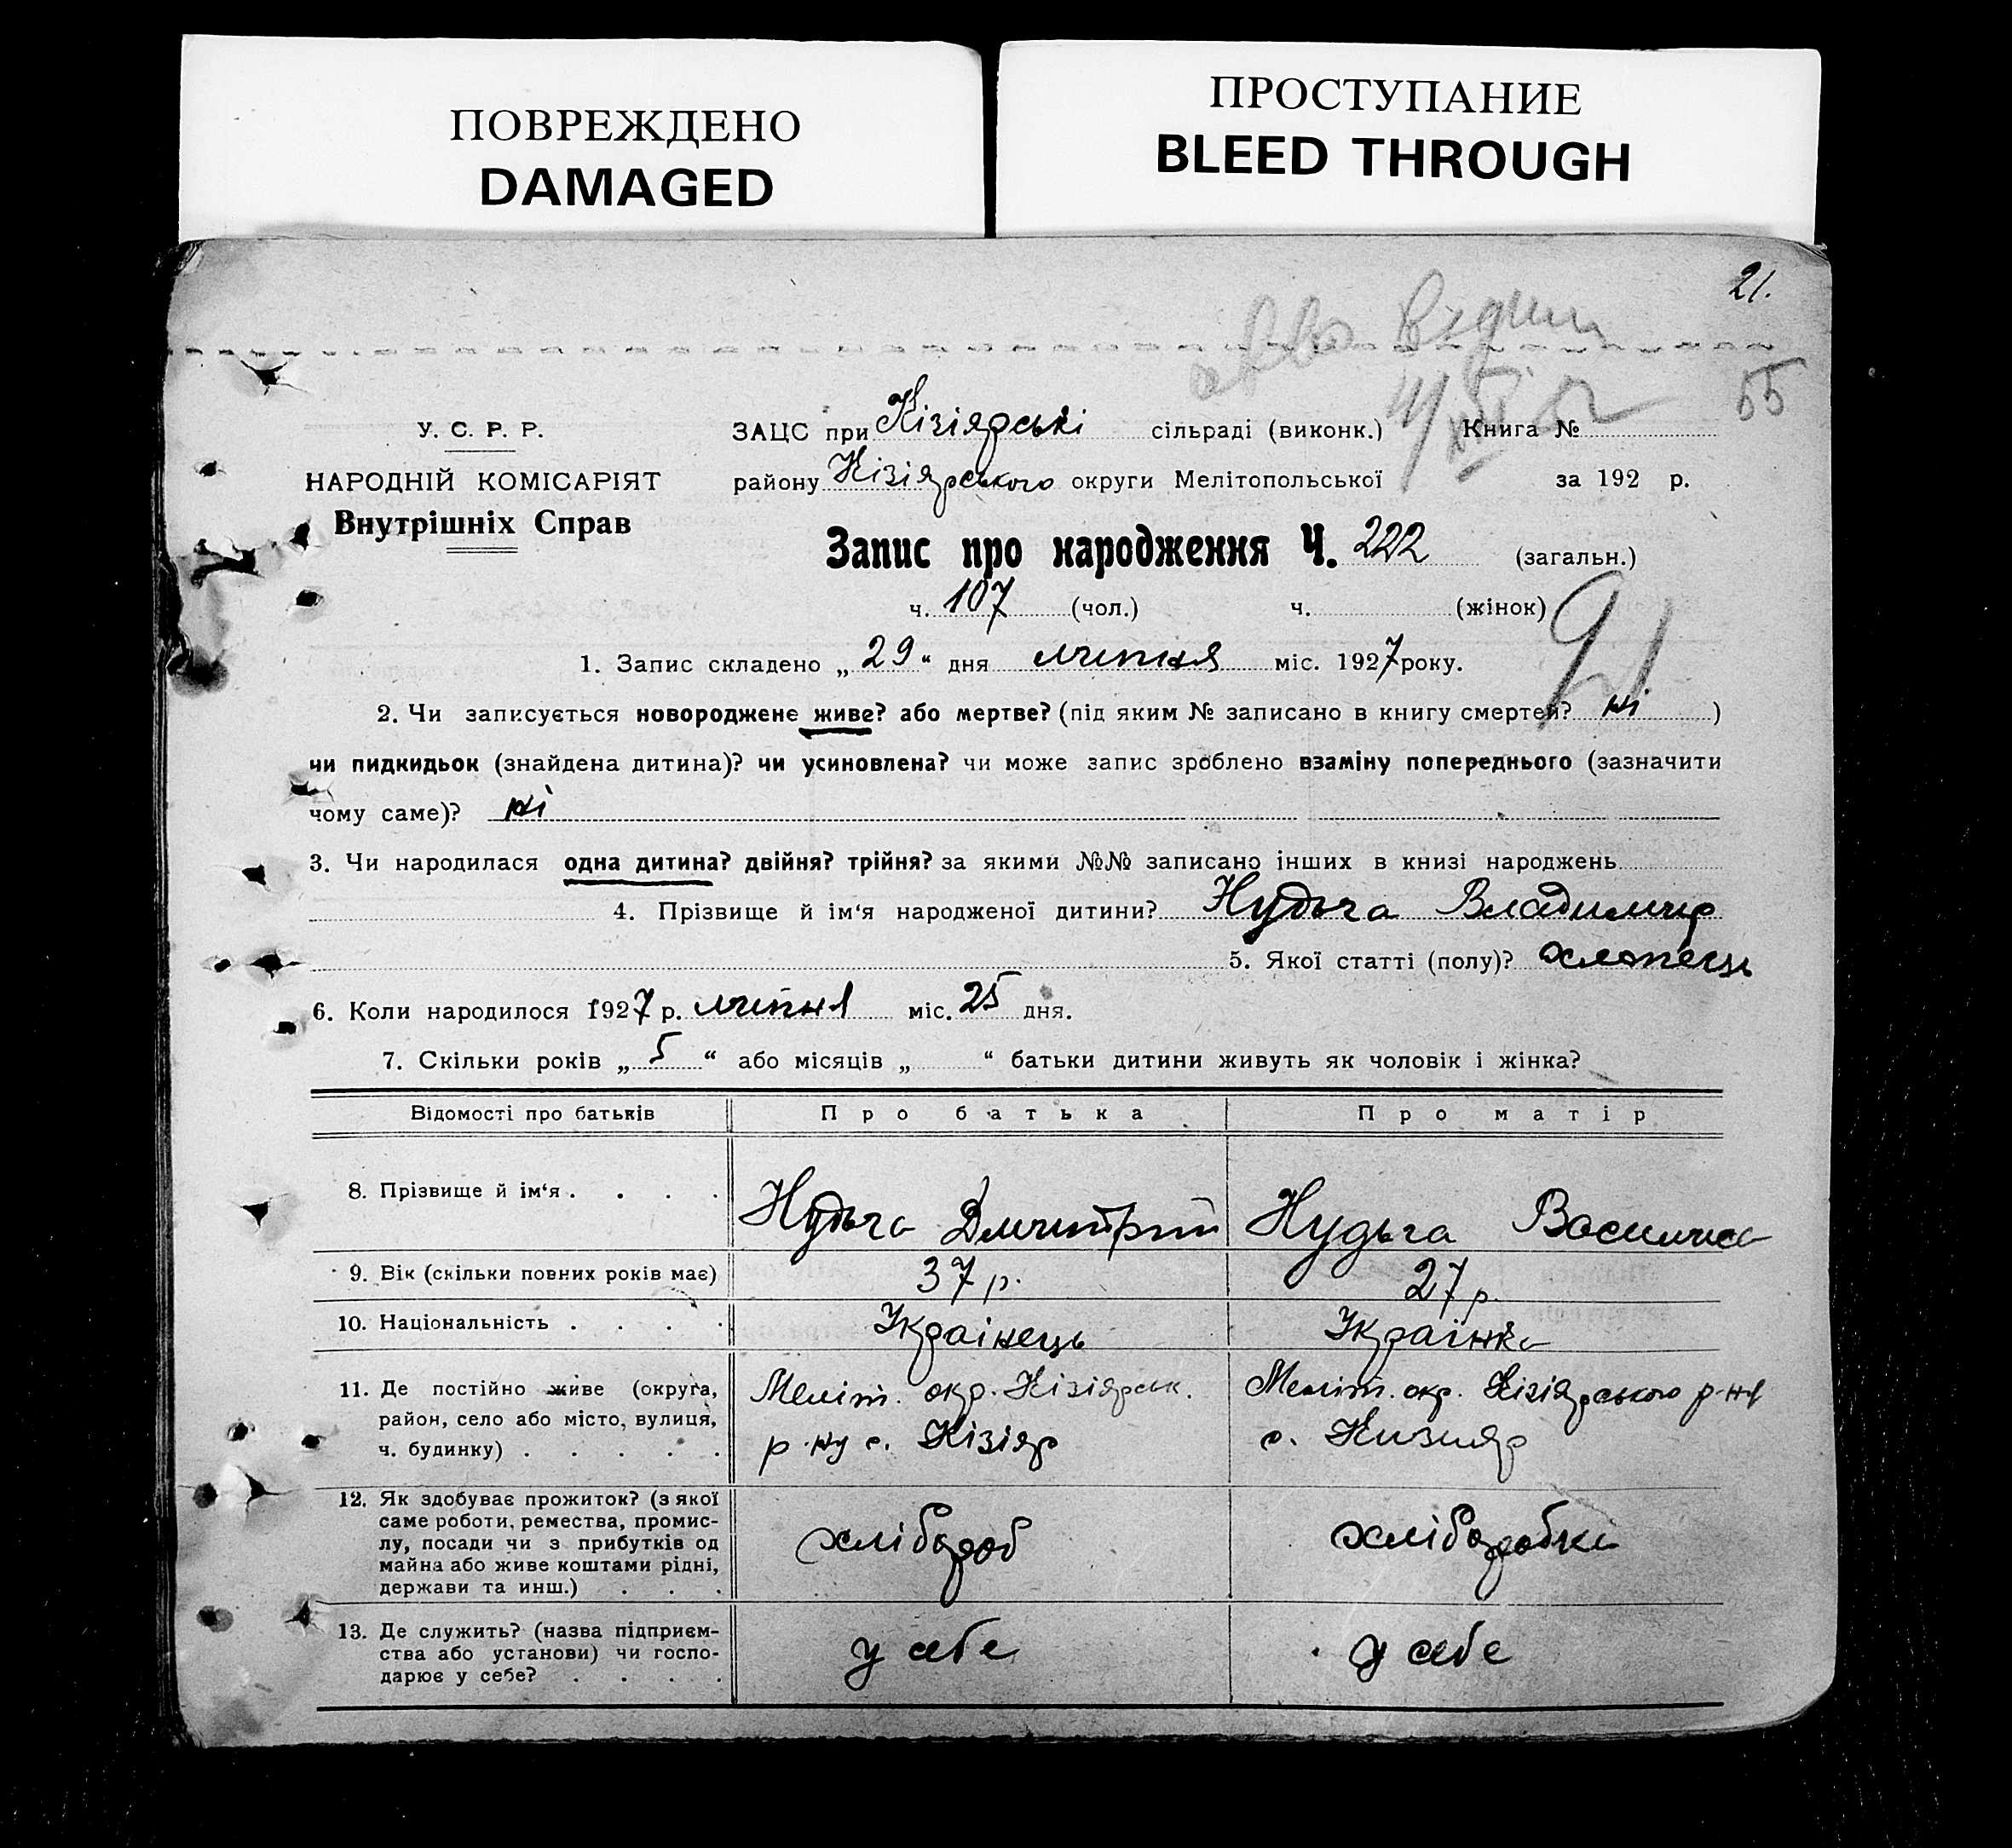 ПОВРЕЖДЕНО
DAMAGED
ПРОСТУПАНИЕ
BLEED THROUGH
21.
55
У. С. Р. Р.
НАРОДНІЙ КОМІСАРІЯТ
Внутрішніх Справ
ЗАЦС при Кізіярські сільраді (виконк.) Книга №
району Кізіярського округи Мелітопольської за 192 р.
Запис про народження Ч. 222 (загальн.)
ч. 107 (чол.) ч. (жінок)
91
1. Запис складено „29“ дня липня міс. 1927 року.
2. Чи записується новороджене живе? або мертве? (під яким № записано в книгу смертей? ні )
чи пидкидьок (знайдена дитина)? чи усиновлена? чи може запис зроблено взаміну попереднього (зазначити
чому саме)? ні
3. Чи народилася одна дитина? двійня? трійня? за якими №№ записано інших в книзі народжень
4. Прізвище й ім‘я народженої дитини? Нудьга Владимир
5. Якої статті (полу)? хлопець
6. Коли народилося 1927 р. липня міс. 25 дня.
7. Скільки років „5“ або місяців „ “ батьки дитини живуть як чоловік і жінка?
Відомості про батьків Про батька Про матір
8. Прізвище й ім‘я . . . . Нудьга Дмитрий Нудьга Василиса
9. Вік (скільки повних років має) 37 р. 27 р.
10. Національність . . . . Українець Українка
11. Де постійно живе (округа, Меліт. окр. Кізіярськ. Меліт. окр. Кізіярського р-ня
район, село або місто, вулиця, р-ну с. Кізіяр с. Кизияр
ч. будинку) . . . . .
12. Як здобуває прожиток? (з якої
саме роботи, ремества, промис-
лу, посади чи з прибутків од хлібороб хліборобка
майна або живе коштами рідні,
держави та инш.) . . .
13. Де служить? (назва підприєм-
ства або установи) чи госпо- у себе у себе
дарює у себе? . . . .